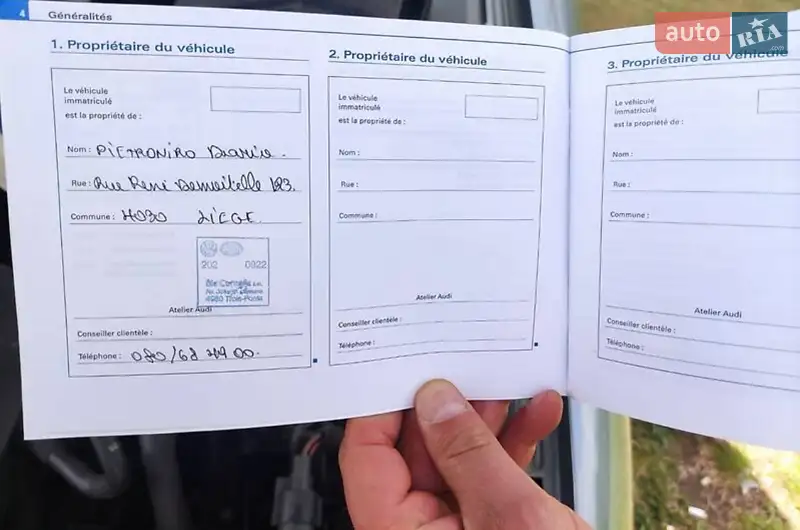 4 Généralités
auto RIA .com
1. Propriétaire du véhicule
Le véhicule
immatriculé
est la propriété de :
Nom : PIETRONIRO Dario.
Rue : Rue René Demoitelle 123.
Commune : 4020 LIEGE.
202 0922
4980 Trois-Ponts
Atelier Audi
Conseiller clientèle :
Téléphone : 080/68
2. Propriétaire du véhicule
Le véhicule
immatriculé
est la propriété de :
Nom :
Rue :
Commune :
Atelier Audi
Conseiller clientèle :
Téléphone :
3. Propriétaire du véhicule
Le véhicule
immatriculé
est la propriété de :
Nom :
Rue :
Commune :
Atelier Audi
Conseiller clientèle :
Téléphone :